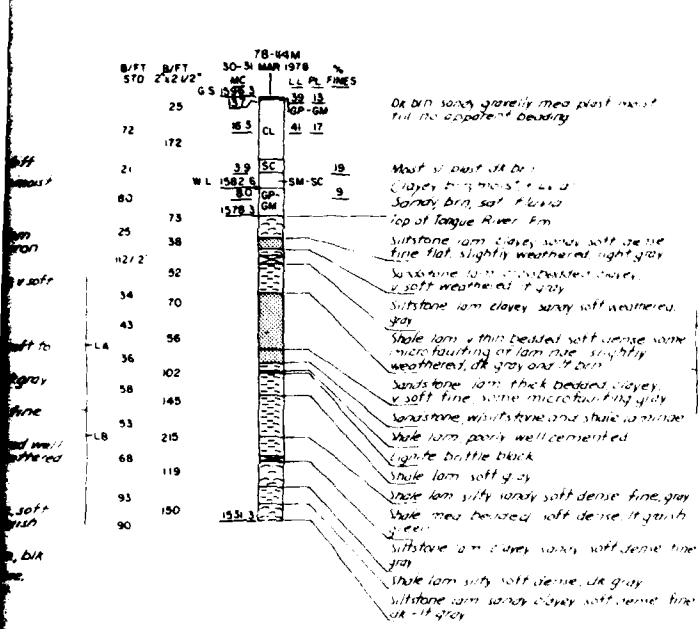 78-144M
30-31 MAR 1978
B/FT STD
B/FT 2"x2 1/2"
MC LL PL % FINES
G.S. 1596.3
25 13.7 39 13
GP-GM
72 16.5 CL 41 17
172
21 3.9 SC 19
W.L. 1582.6 SM-SC
80 8.0 GP-GM 9
1578.3
73
25
38
112/2"
52
34
70
43
56
LA
36
102
58
145
53
LB 215
68
119
93
150
90 1531.3
Dk brn sandy gravelly med plast moist
till no apparent bedding
Moist sl plast dk brn
Clayey brn, moist, fluvial
Sandy brn, sat fluvial
Top of Tongue River Fm
Siltstone lam clayey sandy soft dense
fine flat, slightly weathered, light gray
Sandstone lam crossbedded clayey,
v soft weathered lt gray
Siltstone lam clayey sandy soft weathered,
gray
Shale lam v thin bedded soft dense some
microfaulting of laminae slightly
weathered, dk gray and lt brn
Sandstone lam thick bedded, clayey,
v soft fine, some microfaulting gray
Sandstone, w/siltstone and shale laminae
Shale lam poorly well cemented
Lignite brittle black
Shale lam soft gray
Shale lam silty sandy soft dense fine, gray
Shale med bedded soft dense, lt grnish
green
Siltstone lam clayey sandy soft dense fine
gray
Shale lam silty soft dense, dk gray
Siltstone lam sandy clayey soft dense fine
dk - lt gray
moist
v soft
soft to
gray
fine
ed well
weathered
soft
blk